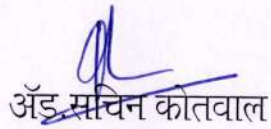 ॲड.सचिन कोतवाल